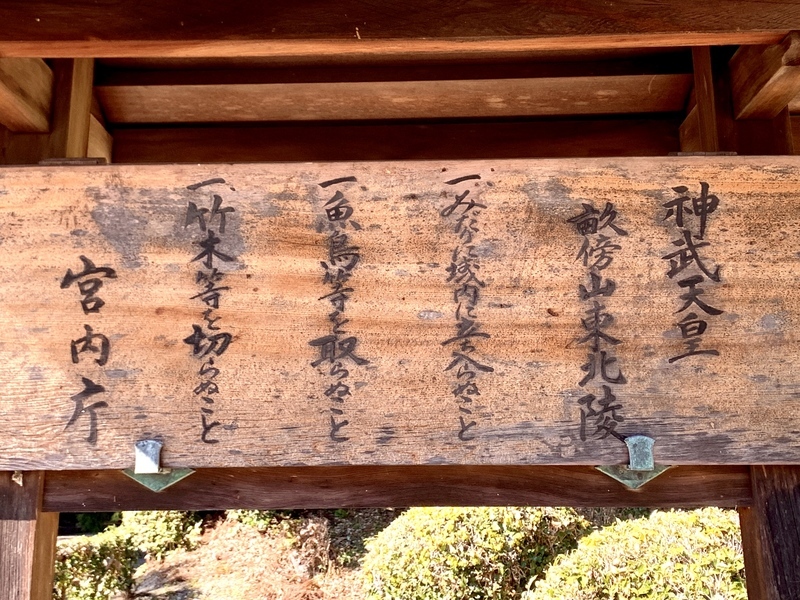 神武天皇
畝傍山東北陵
一、みだりに域内に立入らぬこと
一、魚鳥等を取らぬこと
一、竹木等を切らぬこと
宮内庁